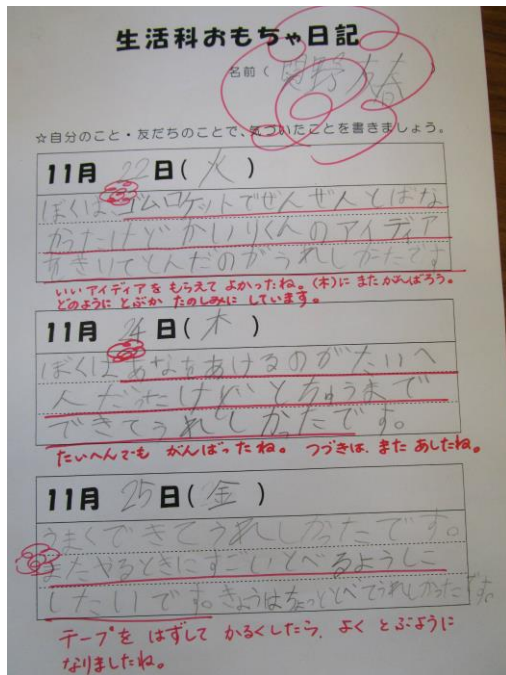 生活科おもちゃ日記
名前( 野 春 )
☆自分のこと・友だちのことで、気づいたことを書きましょう。
11月 22日( 火 )
ぼくは、ゴムロケットでぜんぜんとばな
かったけどかいりくんのアイディア
をきいてとんだのがうれしかったです
いいアイディアを もらえて よかったね。(木)に またがんばろう。
どのように とぶか たのしみに しています。
11月 24日( 木 )
ぼくはあなをあけるのがたいへ
んだったけどとちゅうまで
できてうれしかったです。
たいへんでも がんばったね。 つづきは、また あしたね。
11月 25日( 金 )
うまくできてうれしかったです。
またやるときにすごいとべるようしに
したいです。きょうはちょっととべてうれしかったです。
テープを はずして かるくしたら、よく とぶように
なりましたね。